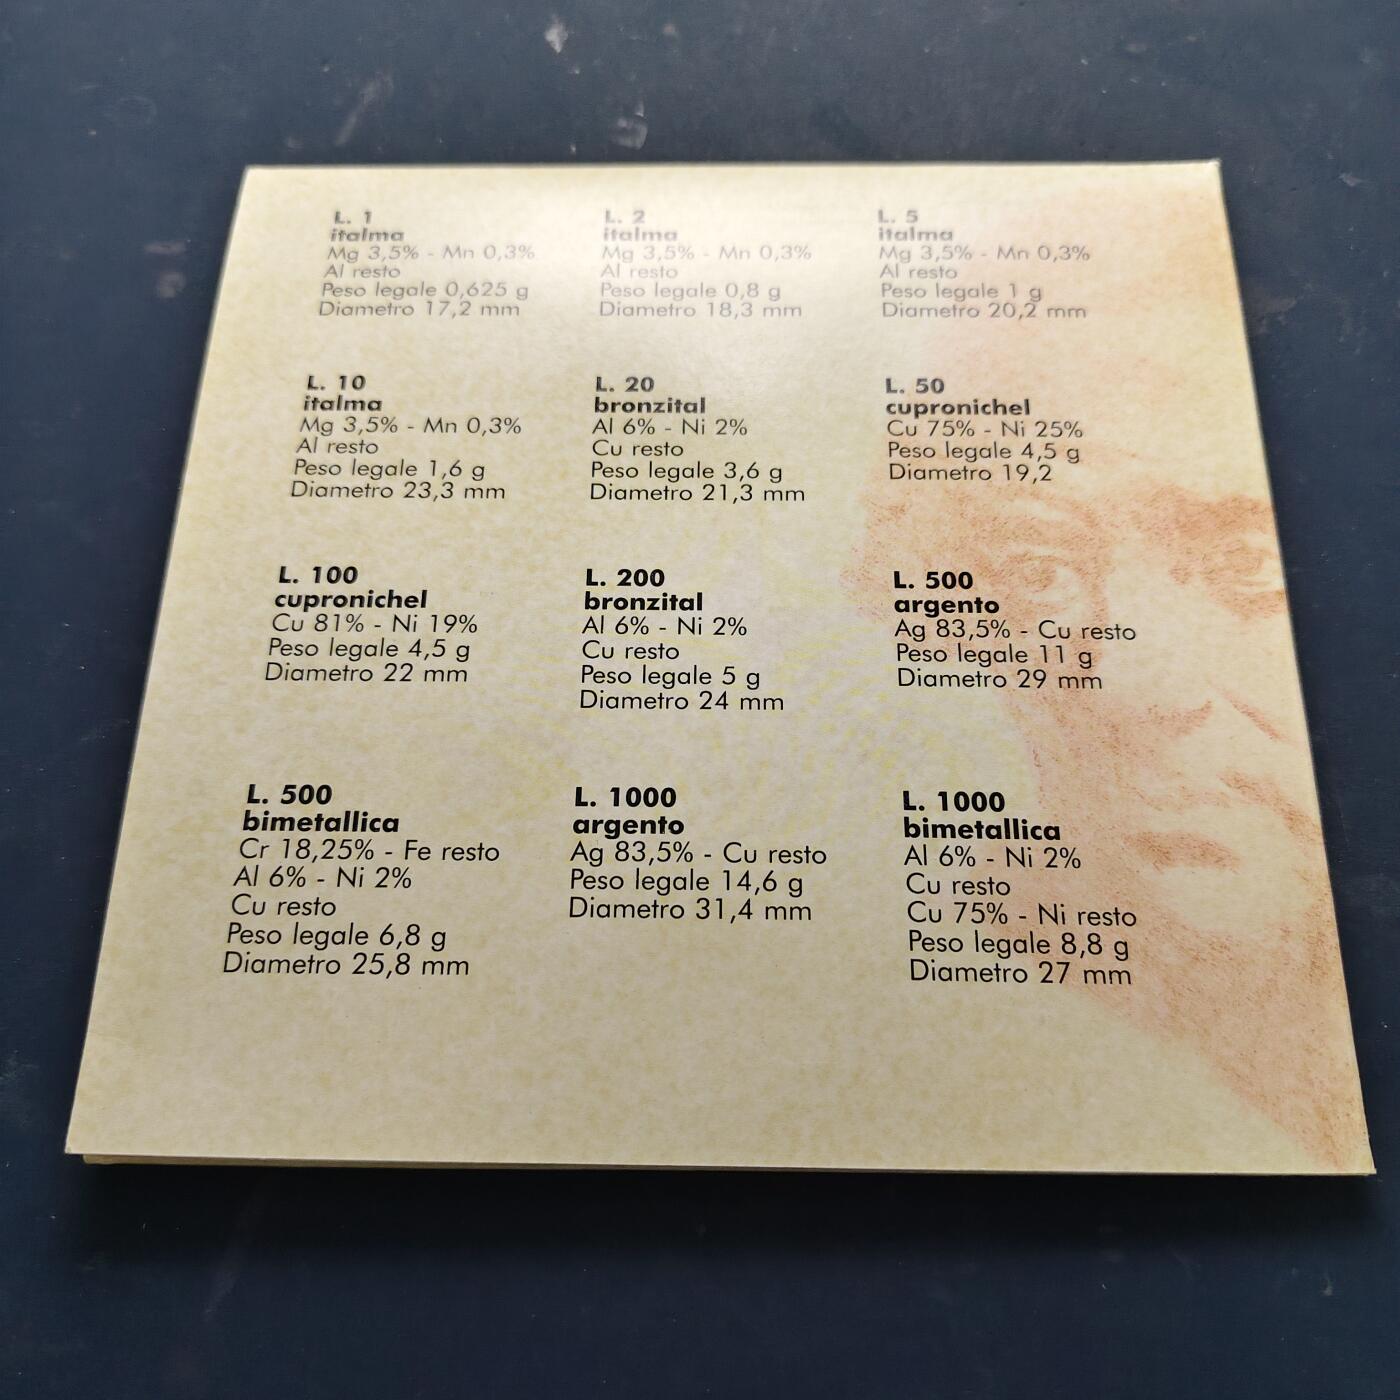 L. 1
italma
Mg 3,5% - Mn 0,3%
Al resto
Peso legale 0,625 g
Diametro 17,2 mm
L. 2
italma
Mg 3,5% - Mn 0,3%
Al resto
Peso legale 0,8 g
Diametro 18,3 mm
L. 5
italma
Mg 3,5% - Mn 0,3%
Al resto
Peso legale 1 g
Diametro 20,2 mm
L. 10
italma
Mg 3,5% - Mn 0,3%
Al resto
Peso legale 1,6 g
Diametro 23,3 mm
L. 20
bronzital
Al 6% - Ni 2%
Cu resto
Peso legale 3,6 g
Diametro 21,3 mm
L. 50
cupronichel
Cu 75% - Ni 25%
Peso legale 4,5 g
Diametro 19,2
L. 100
cupronichel
Cu 81% - Ni 19%
Peso legale 4,5 g
Diametro 22 mm
L. 200
bronzital
Al 6% - Ni 2%
Cu resto
Peso legale 5 g
Diametro 24 mm
L. 500
argento
Ag 83,5% - Cu resto
Peso legale 11 g
Diametro 29 mm
L. 500
bimetallica
Cr 18,25% - Fe resto
Al 6% - Ni 2%
Cu resto
Peso legale 6,8 g
Diametro 25,8 mm
L. 1000
argento
Ag 83,5% - Cu resto
Peso legale 14,6 g
Diametro 31,4 mm
L. 1000
bimetallica
Al 6% - Ni 2%
Cu resto
Cu 75% - Ni resto
Peso legale 8,8 g
Diametro 27 mm